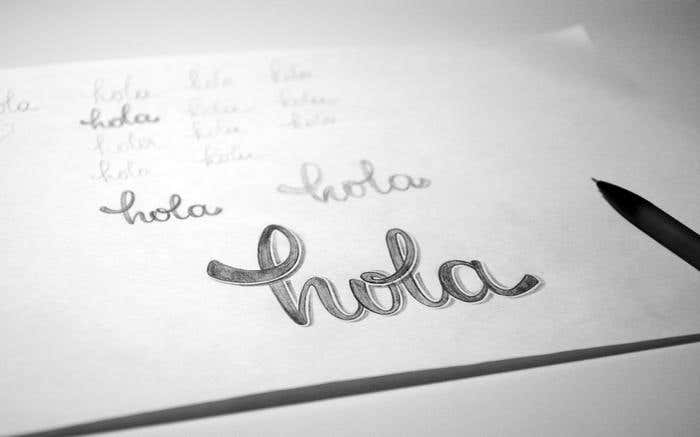 hola hola hola
hola hola hola
hola hola hola
hola hola
hola hola
hola